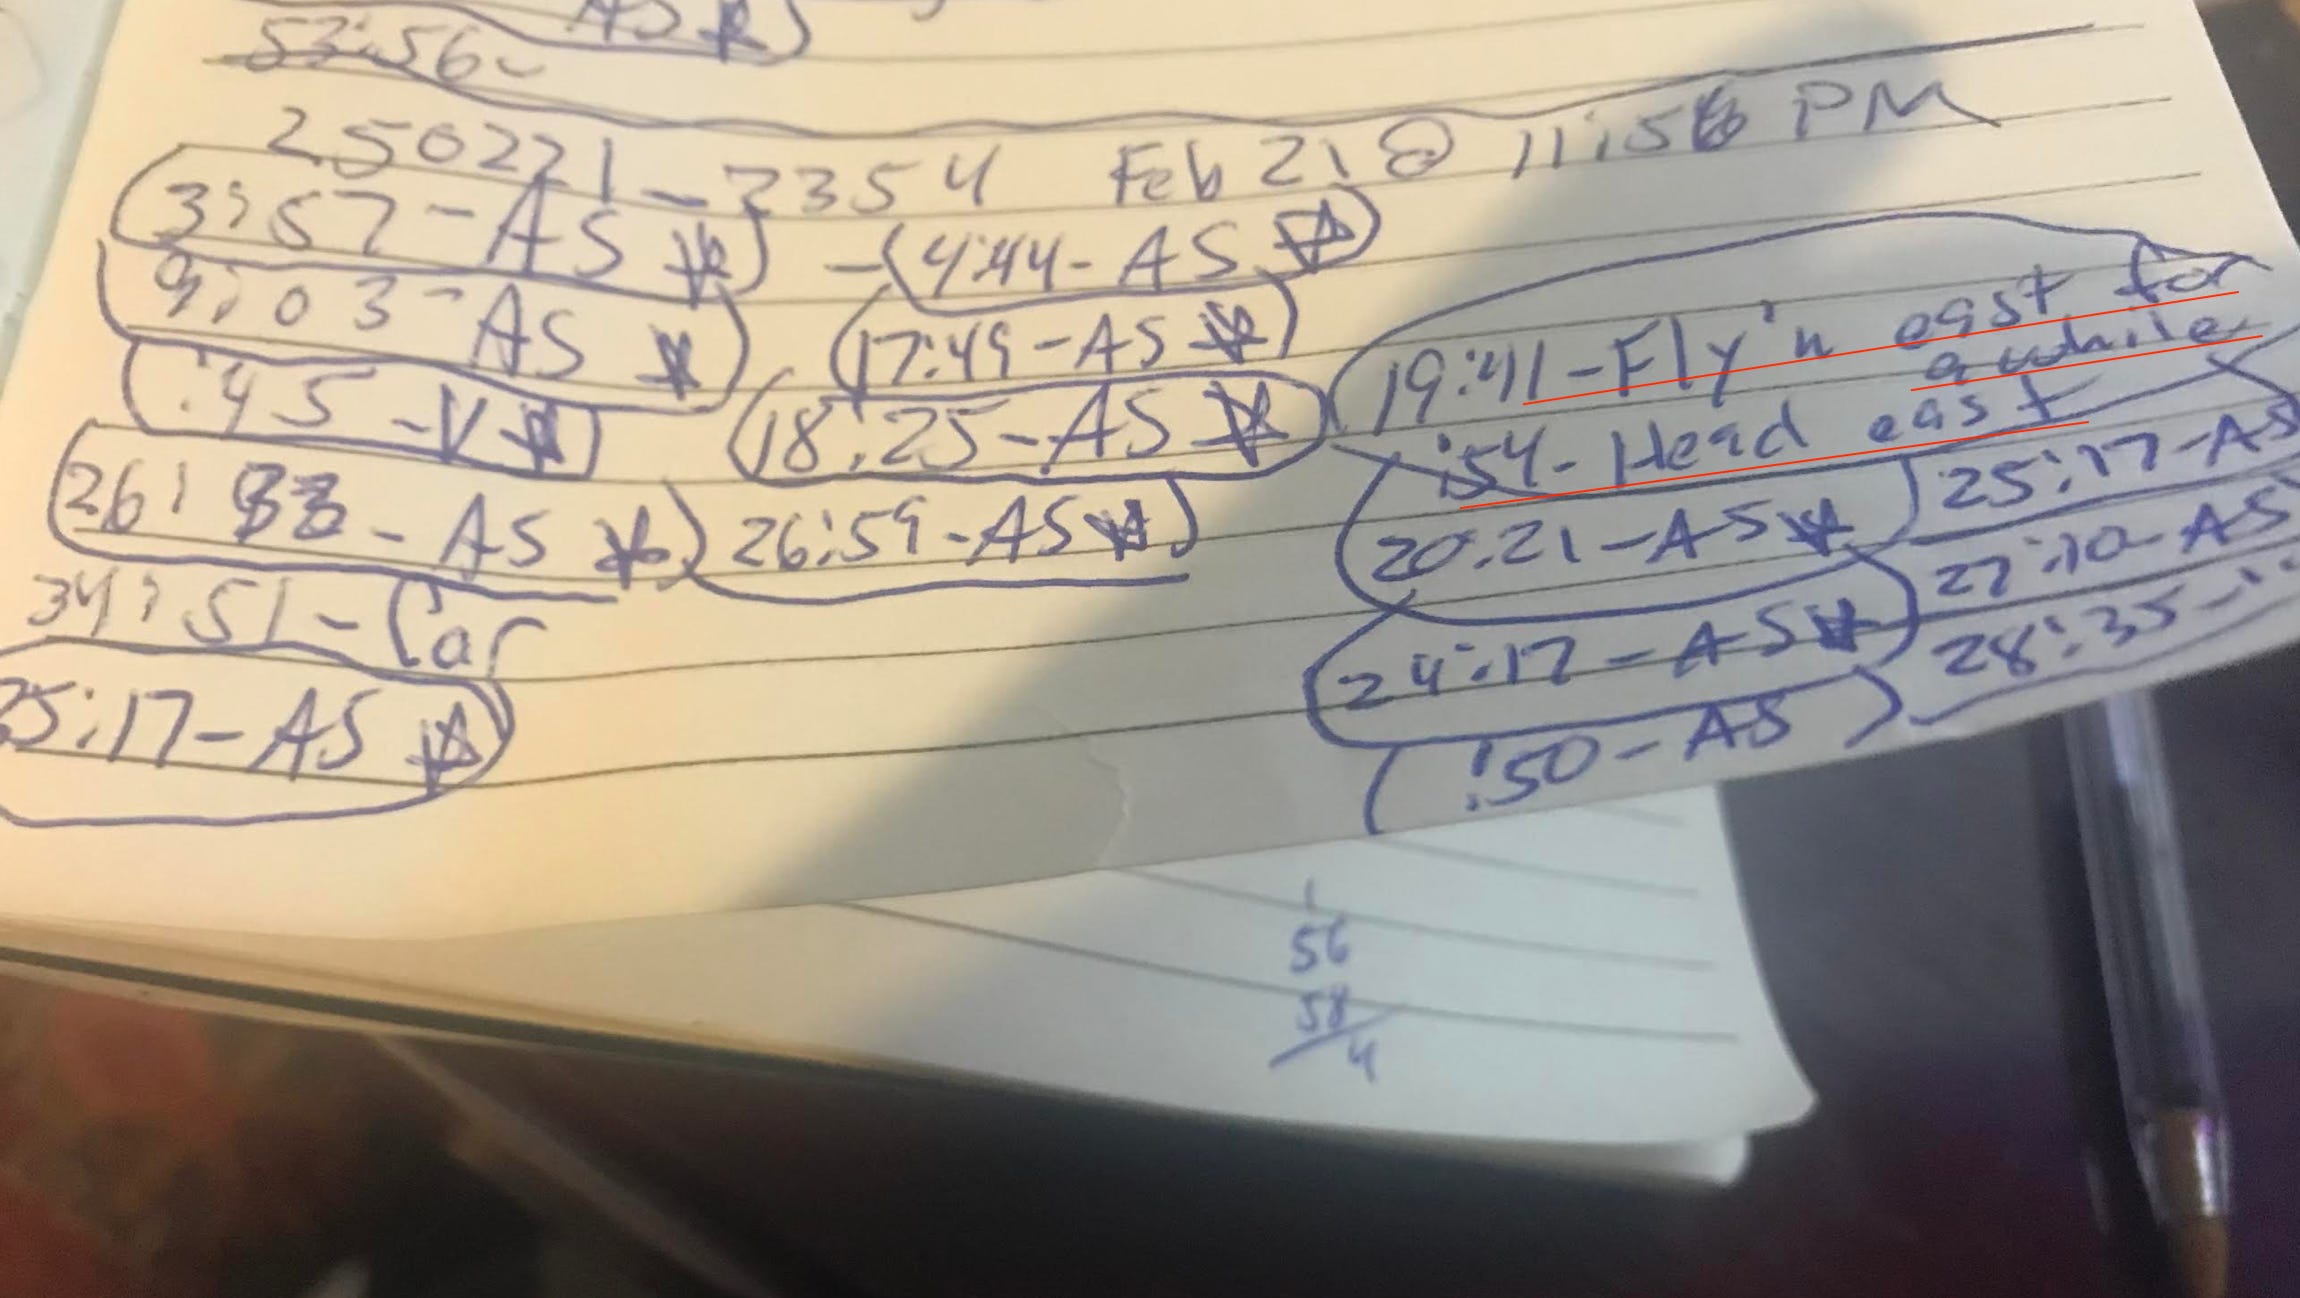 AS
53:56-
250221_2354 Feb 21 @ 11:56 PM
3:57-AS - 4:44-AS
9:03-AS 17:49-AS 19:41-Fly'n east for awhile
:45-V 18:25-AS :54-Head east
26: -AS 26:59-AS 20:21-AS 25:17-AS
34:51-Car 24:17-AS 27:10-AS
25:17-AS :50-AS 28:35-
1
56
58
4